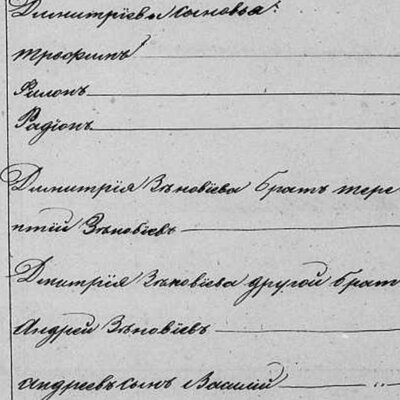 Димитріевы сыновья:
Трофимъ
Филонъ
Радіонъ
Димитрія Зѣновіева братъ Тере
нтій Зѣновіевъ
Дмитрія Зѣновіева другой братъ
Андрей Зѣновіевъ
Андреевъ сынъ Василій